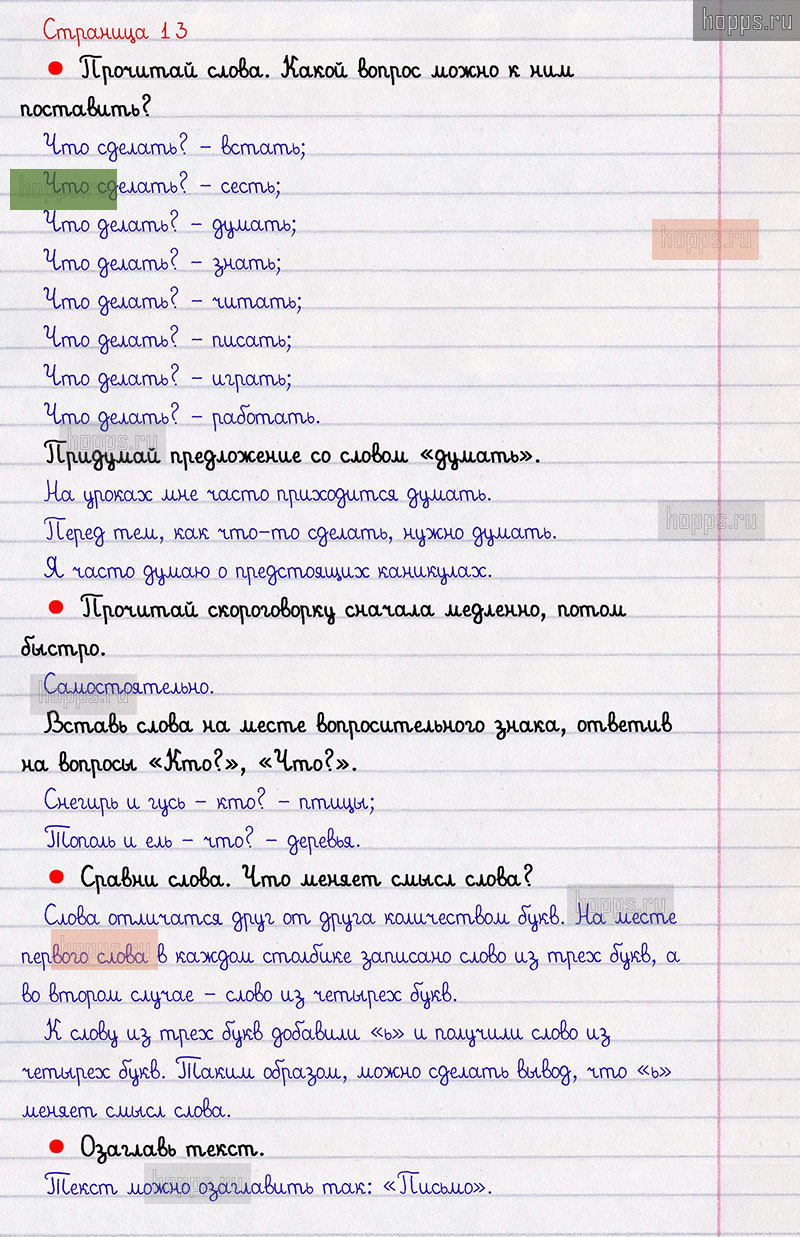 hopps.ru
Страница 13
• Прочитай слова. Какой вопрос можно к ним
поставить?
Что сделать? – встать;
Что сделать? – сесть;
hopps.ru
Что делать? – думать;
hopps.ru
Что делать? – знать;
Что делать? – читать;
Что делать? – писать;
Что делать? – играть;
Что делать? – работать.
hopps.ru
Придумай предложение со словом «думать».
На уроках мне часто приходится думать.
hopps.ru
Перед тем, как что-то сделать, нужно думать.
Я часто думаю о предстоящих каникулах.
• Прочитай скороговорку сначала медленно, потом
быстро.
Самостоятельно.
hopps.ru
Вставь слова на месте вопросительного знака, ответив
на вопросы «Кто?», «Что?».
Снегирь и гусь – кто? – птицы;
Тополь и ель – что? – деревья.
• Сравни слова. Что меняет смысл слова?
hopps.ru
Слова отличатся друг от друга количеством букв. На месте
первого слова в каждом столбике записано слово из трех букв, а
hopps.ru
во втором случае – слово из четырех букв.
К слову из трех букв добавили «ь» и получили слово из
четырех букв. Таким образом, можно сделать вывод, что «ь»
меняет смысл слова.
• Озаглавь текст.
Текст можно озаглавить так: «Письмо».
hopps.ru